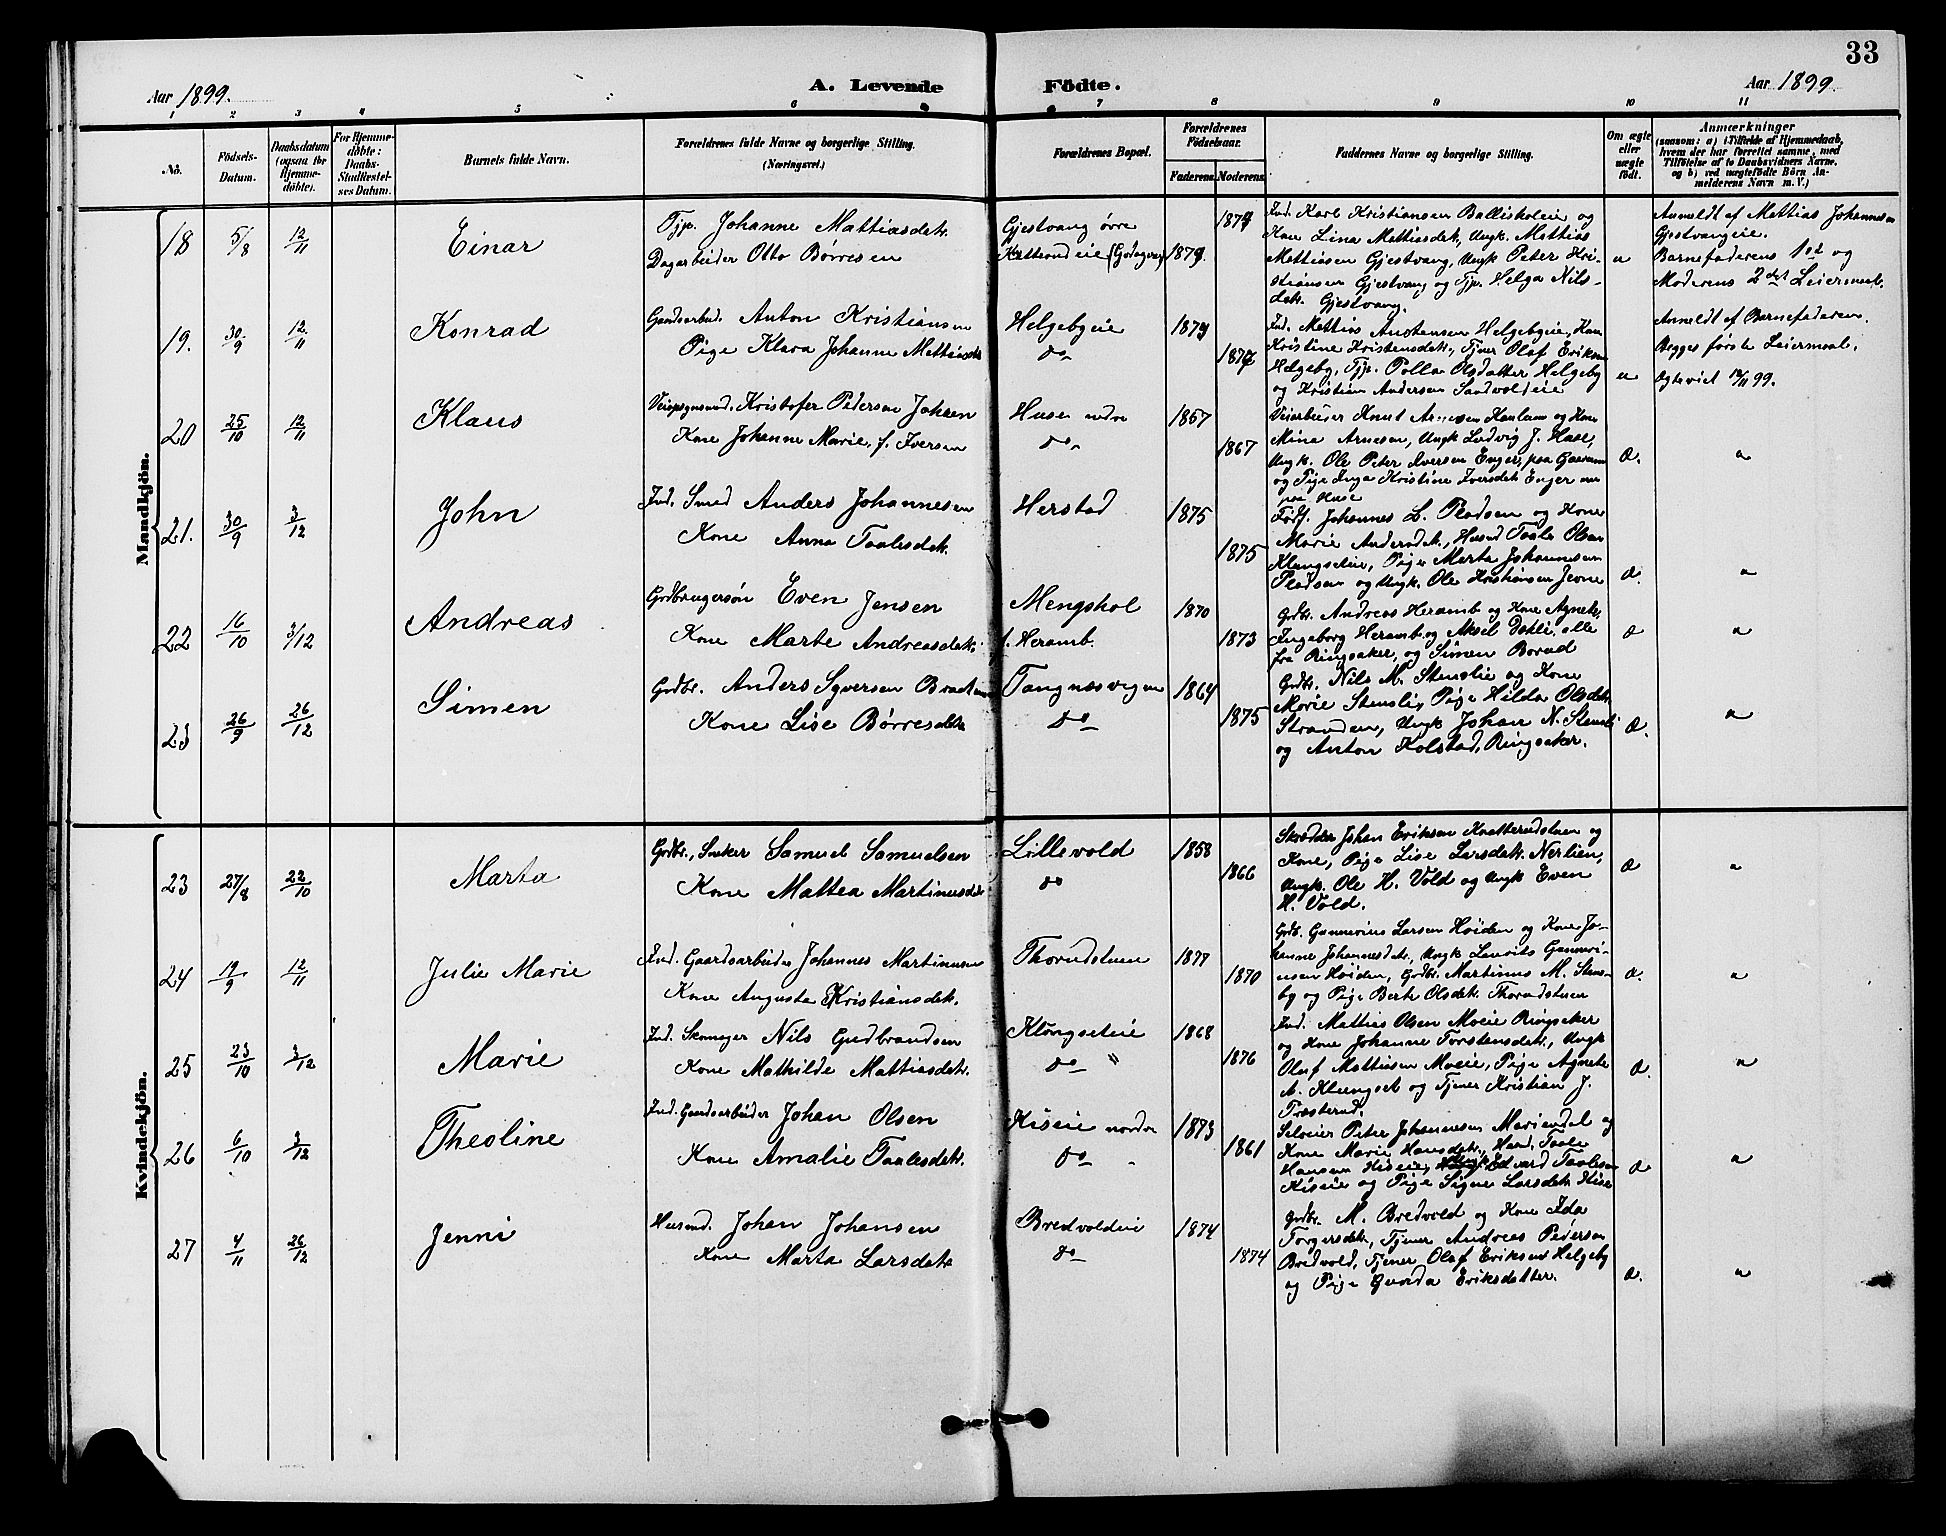 33
Aar 1899.
A. Levende Födte.
Aar 1899.
1 2 3 4 5 6 7 8 9 10 11
No.
Födsels-Datum.
Daabsdatum (ogsaa for Hjemmedöbte).
For Hjemmedöbte: Daabs-Stadfæstelses Datum.
Barnets fulde Navn.
Forældrenes fulde Navne og borgerlige Stilling.
(Næringsvei.)
Forældrenes Bopæl.
Forældrenes Födselsaar.
Faderens. Moderens.
Faddernes Navne og borgerlige Stilling.
Om ægte eller uægte födt.
Anmærkninger
(saasom: a) i Tilfælde af Hjemmedaab, hvem der har forrettet samme, med Tilföielse af to Daabsvidners Navne, og b) ved uægtefödte Börn Anmelderens Navn m. V.)
Mandkjön.
18 5/8 12/11 Einar
Tjp. Johanne Mattiasdtr.
Dagarbeider Otto Børresen
Gjestvang øvre
1879 1879
Ind. Karl Kristiansen Balliskoleie og
Kone Lina Mattiasdtr., Ungk. Mattias
Mattiasen Gjestvang, Ungk Peter Kri-
stiansen Gjestvang og Tjp. Helga Nils-
dtr. Gjestvang.
u
Anmeldt af Mattias Johannesen
Gjestvangeie.
Barnefaderens 1ste og
Moderens 2det Leiermaal.
19. 30/9 12/11 Konrad
Gaardsarbeid. Anton Kristiansen
Pige Klara Johanne Mattiasdtr
Helgebyeie
do
1879
Ind. Mattias Austensen Helgebyeie, Kone
Kristine Kristensdtr., Tjener Olaf Eriksen
Helgeby, Tjp. Polla Olsdatter Helgeby
og Kristian Andersen Sandvoldeie
u
Anmeldt af Barnefaderen.
Begges første Leiermaal.
Ægteviet 12/11 99.
20 25/10 12/11 Klaus
Kristofer Pedersen Johsen
Kone Johanne Marie, f. Iversen
Huse nedre
do
1867 1867
Veiarbeider Knut Arnesen Kaulum og Kone
Mina Arnesen, Ungk Ludvig J. Huse,
Ungk. Ole Peter Iversen Enger, paa
og Pige Inga Kristine Iversdtr Enger
paa Huse
Æ. "
21. 30/9 3/12 John
Ind. Smed Anders Johannesen
Kone Anna Taalesdtr.
Herstad
1875 1875
Födf. Johannes L. Pladsen og Kone
Marie Andersdtr., Husmd Taale Olsen
Klungseteie, Pige Marta Johannesen
Pladsen og Ungk. Ole Kristiansen Jevne
Æ. "
22 16/10 3/12 Andreas
Grdbrugersøn Even Jensen
Kone Marte Andreasdtr.
Mengshol
f. Heramb.
1870 1873
Grdbr. Andreas Heramb og Kone Agnete,
Ingeborg Heramb og Aksel Dæhli, alle
fra Ringsaker, og Simen Borud
Æ "
23 26/9 26/12 Simen
Grdbr. Anders Syversen
Kone Lise Børresdtr
Tangnæsvigen
do
1864 1875
Grdbr. Nils M. Stenslie og Kone
Marie Stensli, Pige Hilda Olsdtr.
Stranden, Ungk Johan N. Stensli
og Anton Kolstad, Ringsaker.
Æ. "
Kvindekjön.
23 27/8 22/10 Marta
Grdbr., Sneker Samuel Samuelsen
Kone Mattea Martinusdtr
Lillevold
do
1858 1866
Skrædder Johan Eriksen Knatterudstuen og
Kone, Pige Lise Larsdtr. Nerlien,
Ungk. Ole H. Vold og Ungk Even
H. Vold.
Æ "
24 19/9 12/11 Julie Marie
Ind. Gaardsarbeider Johannes Martinusen
Kone Augusta Kristiansdtr.
Thorudstuen
1877 1870
Grdb. Gunnerius Larsen Høiden og Kone Jo-
hanne Johannesdtr, Ungk Laurits Gunneri-
usen Høiden, Grdbr. Martinus M. Stens-
by og Pige Berte Olsdtr. Thorudstuen
Æ. "
25 23/10 3/12 Marie
Ind. Skomager Nils Gudbrandsen
Kone Mathilde Mattiasdtr.
Klongseteie
do "
1868 1876
Ind. Mattias Olsen Moeie Ringsaker
og Kone Johanne Torstensdtr., Ungk
Oluf Mattisen Moeie, Pige Agnete
A. Klungset og Tjener Kristian J.
Træsterud.
Æ. "
26 6/10 3/12 Theoline
Ind. Gaardsarbeider Johan Olsen
Kone Amalie Taalesdtr.
Kiseie nordre
do
1873 1861
Selveier Peter Johannesen Mariendal og
Kone Marie Hansdtr., Husmd. Taale
Hansen Kiseie, Ungk Edvard Taalesen
Kiseie og Pige Signe Larsdtr. Kise
Æ "
27 4/11 26/12 Jenni
Husmd. Johan Johansen
Kone Marta Larsdtr
Bredvoldeie
do
1874 1874
Grdbr. M. Bredvold og Kone Ida
Torgersdtr., Tjener Andreas Pedersen
Bredvold, Tjener Olaf Eriksen Helgeby
og Pige Gunda Eriksdatter.
Æ. "